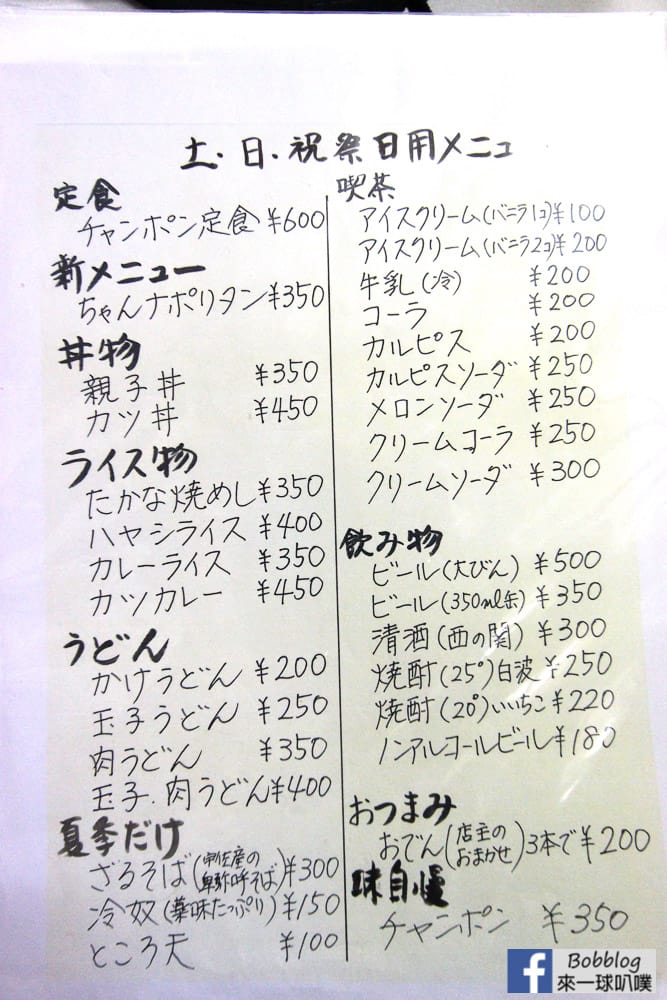 土・日・祝祭日用メニュ
定食
チャンポン定食 ¥600
新メニュー
ちゃんナポリタン ¥350
丼物
親子丼 ¥350
カツ丼 ¥450
ライス物
たかな焼めし ¥350
ハヤシライス ¥400
カレーライス ¥350
カツカレー ¥450
うどん
かけうどん ¥200
玉子うどん ¥250
肉うどん ¥350
玉子.肉うどん ¥400
夏季だけ
ざるそば(宇佐産の卑弥呼そば) ¥300
冷奴(薬味たっぷり) ¥150
ところ天 ¥100
喫茶
アイスクリーム(バニラ1コ) ¥100
アイスクリーム(バニラ2コ) ¥200
牛乳(冷) ¥200
コーラ ¥200
カルピス ¥200
カルピスソーダ ¥250
メロンソーダ ¥250
クリームコーラ ¥250
クリームソーダ ¥300
飲み物
ビール(大びん) ¥500
ビール(350ml缶) ¥350
清酒(西の関) ¥300
焼酎(25°)白波 ¥250
焼酎(20°)いいちこ ¥220
ノンアルコールビール ¥180
おつまみ
おでん(店主のおまかせ)3本で ¥200
味自慢
チャンポン ¥350
f Bobblog
來一球叭噗